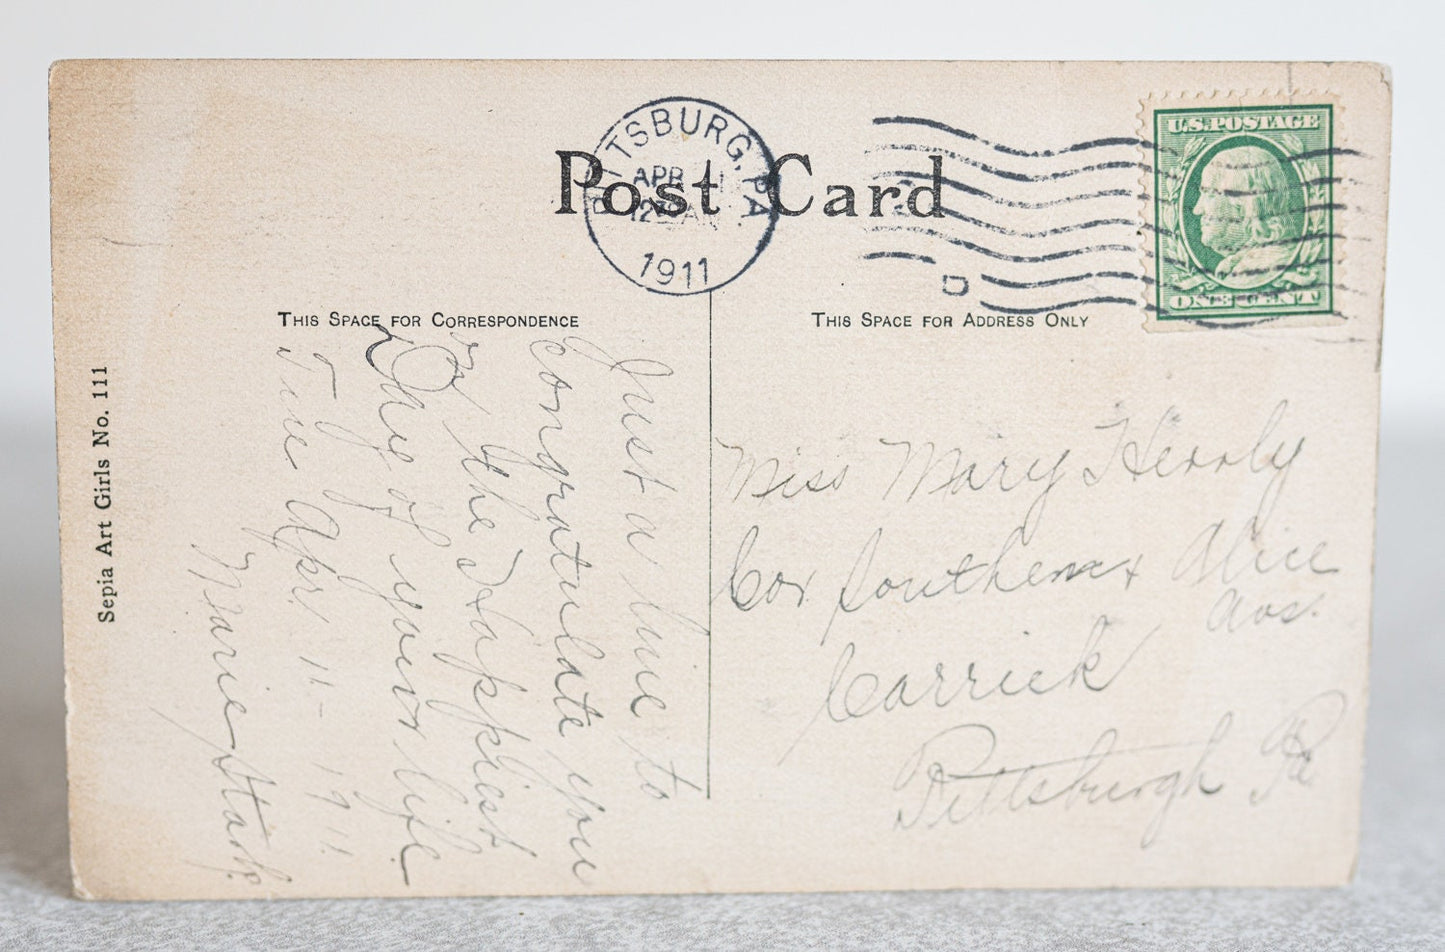 Post Card
PITTSBURG, PA
APR 11
1230 A
1911
D
U.S. POSTAGE
ONE CENT
THIS SPACE FOR CORRESPONDENCE
THIS SPACE FOR ADDRESS ONLY
Sepia Art Girls No. 111
Just a line to
congratulate you
on the Happiest
Day of your life
Tue Apr. 11 - 1911.
Marie Stark.
Miss Mary
Cor. Southern + Alice
Ave.
Carrick
Pittsburgh Pa